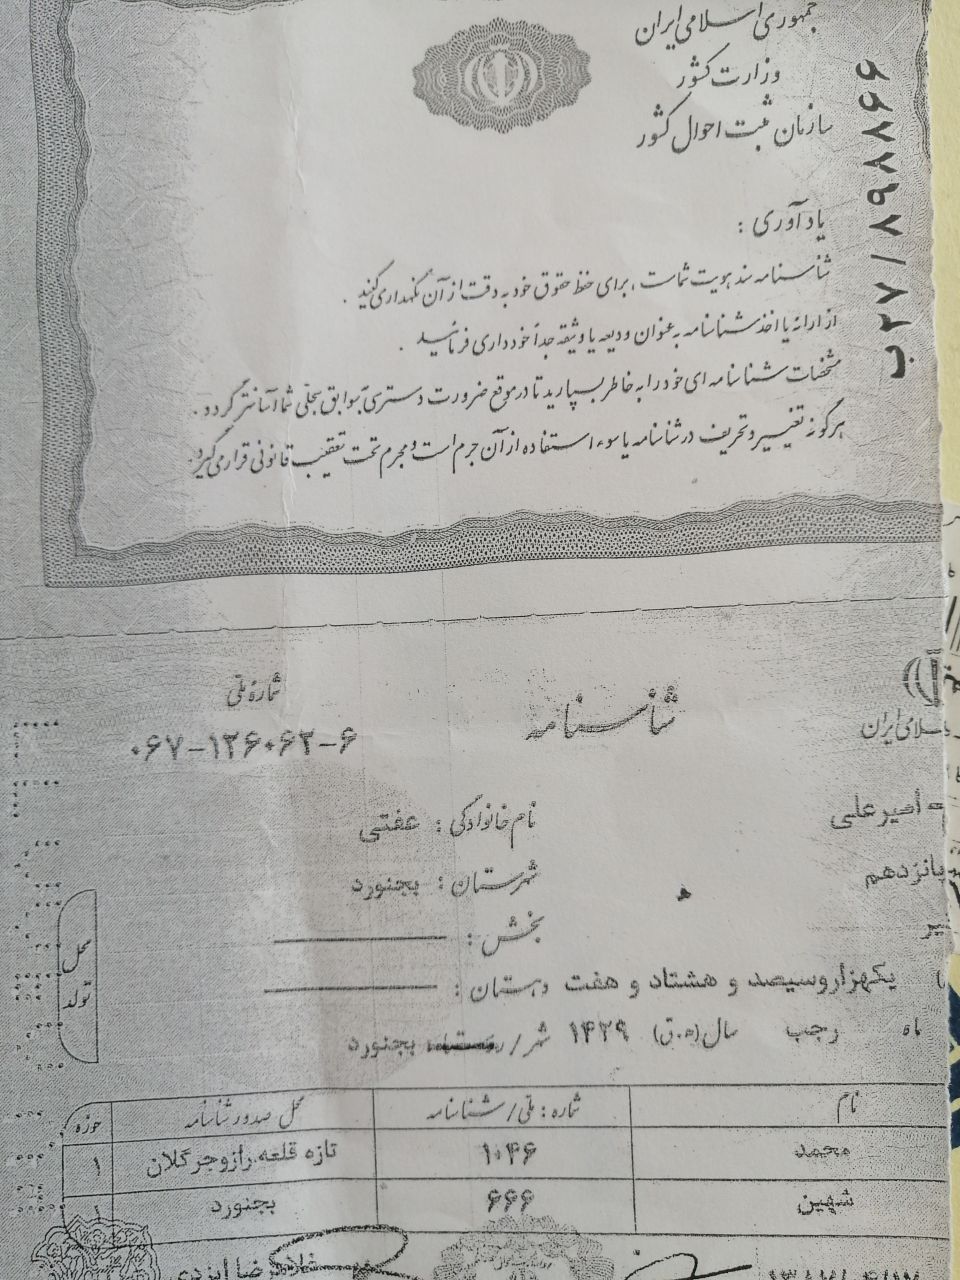 جمهوری اسلامی ایران
وزارت کشور
سازمان ثبت احوال کشور
ب۲۷/۷۹۷۷۶۶
یادآوری :
شناسنامه سند هویت شماست ، برای حفظ حقوق خود به دقت از آن نگهداری کنید .
از ارائه یا اخذ شناسنامه به عنوان ودیعه یا وثیقه جداً خودداری فرمائید .
مشخصات شناسنامه ای خود را به خاطر بسپارید تا در موقع ضرورت دسترسی به سوابق سجلی شما آسانتر گردد .
هرگونه تغییر و تحریف در شناسنامه یا سوء استفاده از آن جرم است و مجرم تحت تعقیب قانونی قرار می گیرد.
شناسنامه
شماره ملی
۰۶۷-۱۲۶۰۶۲-۶
اسلامی ایران
امیرعلی
نام خانوادگی : عفتی
پانزدهم
شهرستان : بجنورد
بخش :
یکهزاروسیصد و هشتاد و هفت دهستان :
ماه رجب سال (ه.ق) ۱۴۲۹ شهر / بجنورد
محل تولد
نام شماره : ملی / شناسنامه محل صدور شناسنامه حوزه
محمد ۱۰۴۶ تازه قلعه.رازوجرگلان ۱
شهین ۶۶۶ بجنورد ۱